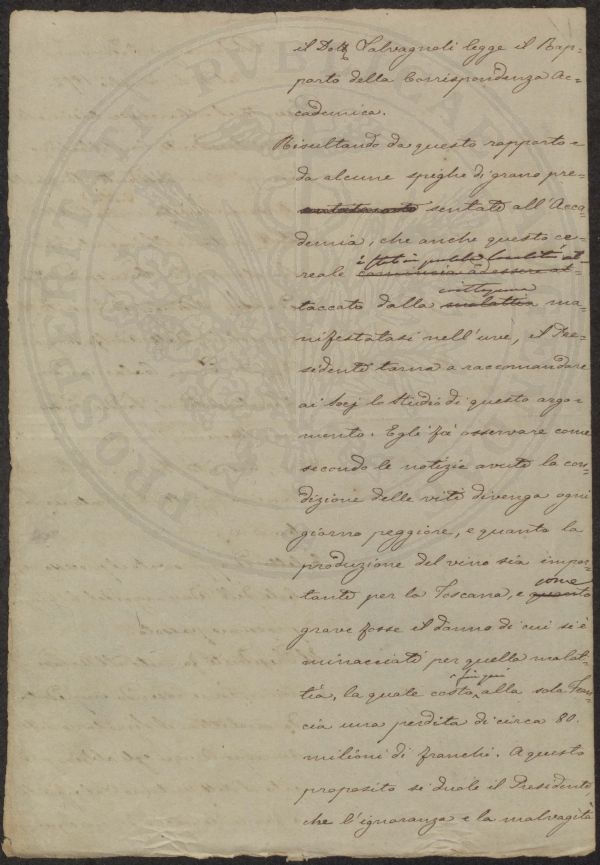 il Dott. Salvagnoli legge il Rap-
porto della Corrispondenza Ac-
cademica.
Risultando da questo rapporto e
da alcune spighe di grano pre-
sentate all'Acca-
demia, che anche questo ce-
reale è stato in qualche località at-
taccato dalla crittogama ma-
nifestatasi nell'uve, il Pre-
sidente torna a raccomandare
ai Socj lo studio di questo argo-
mento. Egli fà osservare come
secondo le notizie avute la con-
dizione delle viti divenga ogni
giorno peggiore, e quanto la
produzione del vino sia impor-
tante per la Toscana, e come
grave fosse il danno di cui si è
minacciati per quella malat-
tia, la quale costa fin quì alla sola Fran-
cia una perdita di circa 80.
milioni di franchi. A questo
proposito si duole il Presidente
che l'ignoranza e la malvagità
PROSPERITATI PVBLICAE